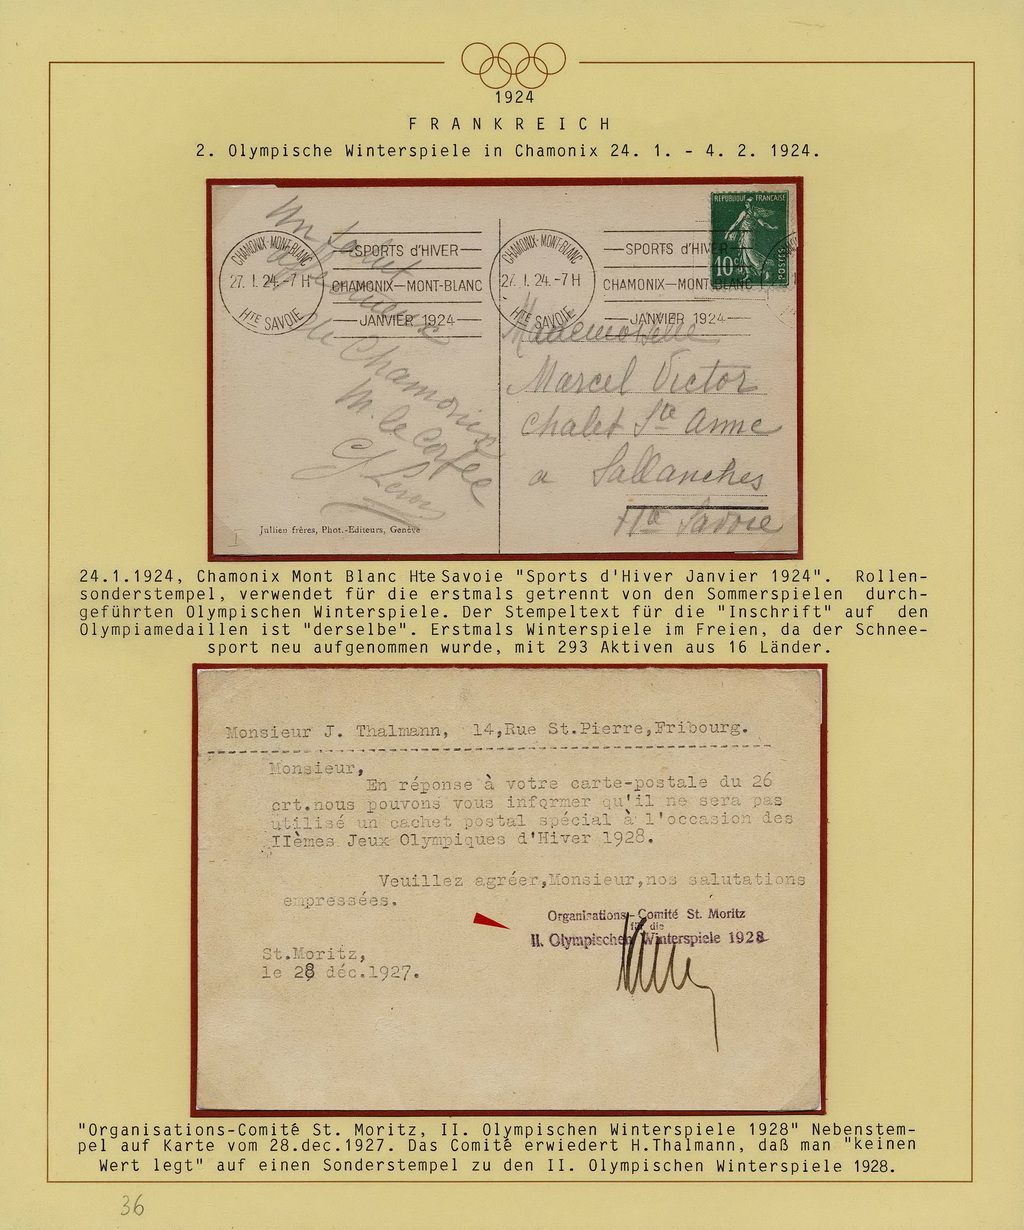 1924
FRANKREICH
2. Olympische Winterspiele in Chamonix 24. 1. - 4. 2. 1924.
CHAMONIX-MONT-BLANC
27. 1. 24.-7H
HTE SAVOIE
SPORTS d'HIVER
CHAMONIX—MONT-BLANC
JANVIER 1924
CHAMONIX-MONT-BLANC
27. 1. 24.-7H
HTE SAVOIE
SPORTS d'HIVER
CHAMONIX—MONT-BLANC
JANVIER 1924
REPUBLIQUE FRANÇAISE
10c
POSTES
Un
de Chamonix
M. le
Mademoiselle
Marcel Victor
Chalet Ste Anne
a Sallanches
Hte Savoie
Jullien frères, Phot.-Editeurs, Genève
I
24.1.1924, Chamonix Mont Blanc Hte Savoie "Sports d'Hiver Janvier 1924". Rollen-
sonderstempel, verwendet für die erstmals getrennt von den Sommerspielen durch-
geführten Olympischen Winterspiele. Der Stempeltext für die "Inschrift" auf den
Olympiamedaillen ist "derselbe". Erstmals Winterspiele im Freien, da der Schnee-
sport neu aufgenommen wurde, mit 293 Aktiven aus 16 Länder.
Monsieur J. Thalmann, 14,Rue St.Pierre,Fribourg.
Monsieur,
En réponse à votre carte-postale du 26
crt.nous pouvons vous informer qu'il ne sera pas
utilisé un cachet postal spécial à l'occasion des
IIèmes Jeux Olympiques d'Hiver 1928.
Veuillez agréer,Monsieur,nos salutations
empressées.
Organisations-Comité St. Moritz
für die
II. Olympischen Winterspiele 1928
St.Moritz,
le 28 déc.1927.
"Organisations-Comité St. Moritz, II. Olympischen Winterspiele 1928" Nebenstem-
pel auf Karte vom 28.dec.1927. Das Comité erwiedert H.Thalmann, daß man "keinen
Wert legt" auf einen Sonderstempel zu den II. Olympischen Winterspiele 1928.
36